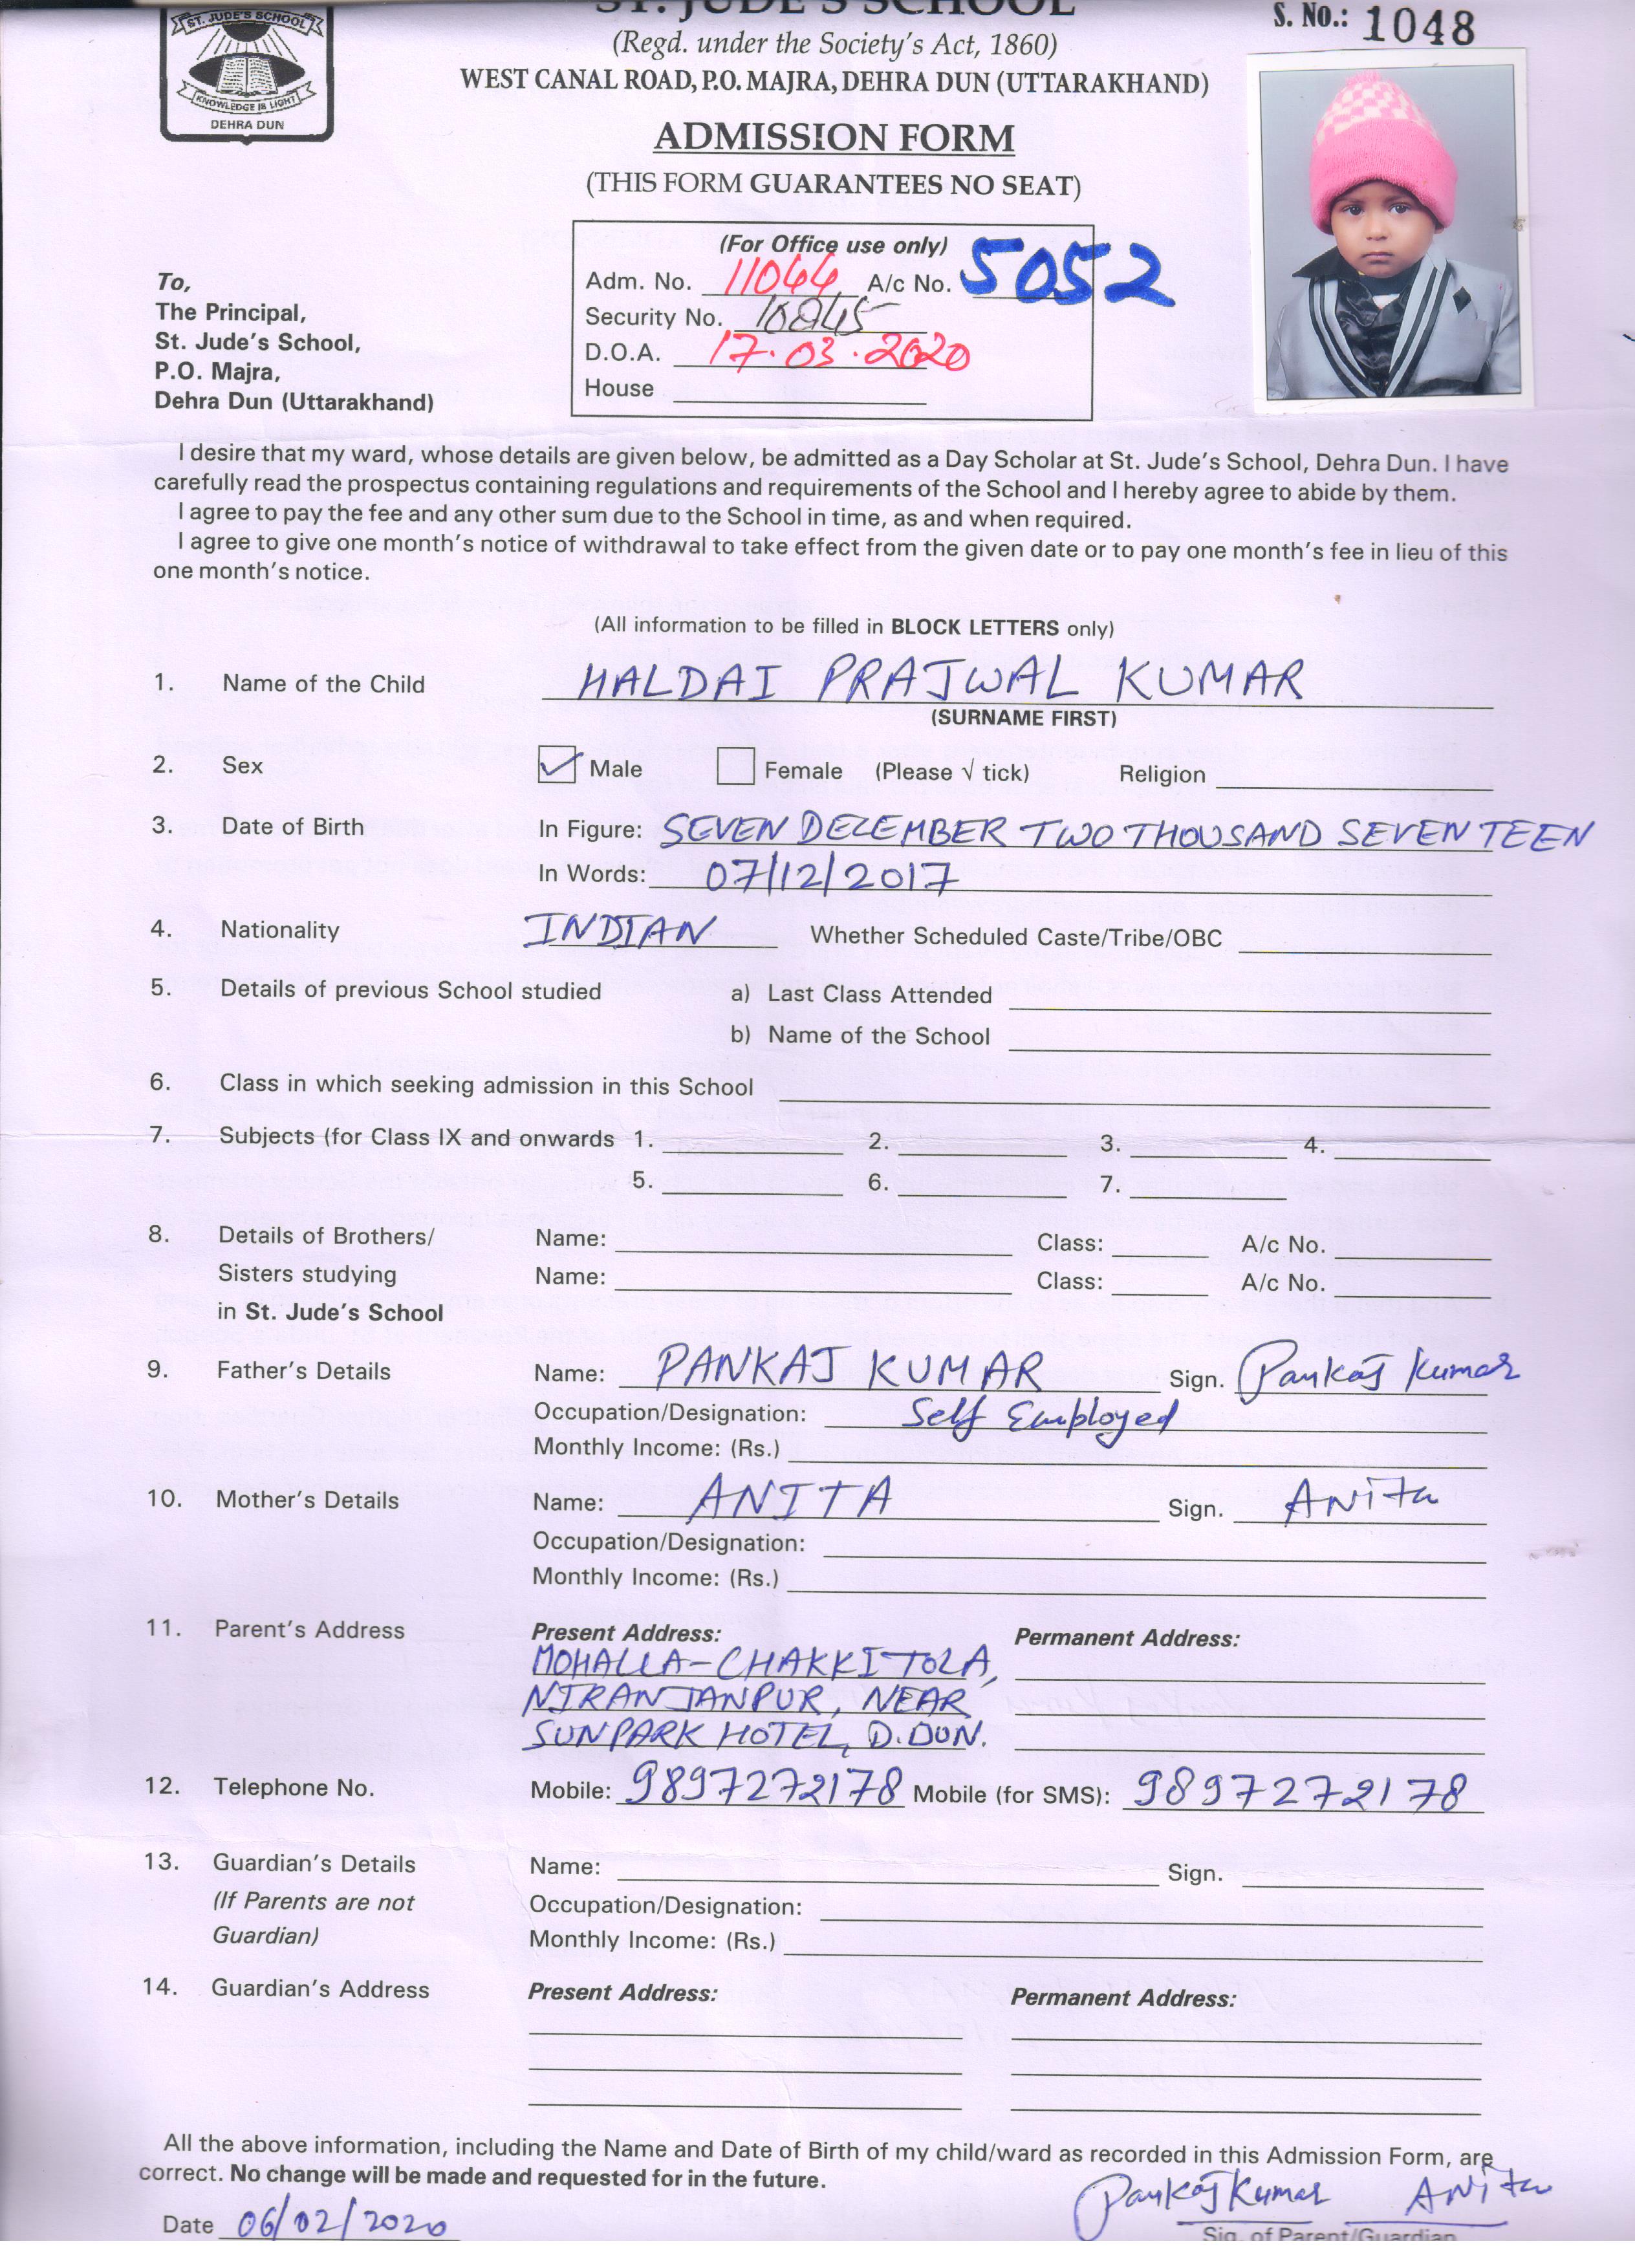 ST. JUDE'S SCHOOL
KNOWLEDGE IS LIGHT
DEHRA DUN
ST. JUDE'S SCHOOL
S. NO.: 1048
(Regd. under the Society's Act, 1860)
WEST CANAL ROAD, P.O. MAJRA, DEHRA DUN (UTTARAKHAND)
ADMISSION FORM
(THIS FORM GUARANTEES NO SEAT)
(For Office use only)
Adm. No. 11044 A/c No. 5052
Security No.
D.O.A. 17.03.2020
House
To,
The Principal,
St. Jude's School,
P.O. Majra,
Dehra Dun (Uttarakhand)
I desire that my ward, whose details are given below, be admitted as a Day Scholar at St. Jude's School, Dehra Dun. I have
carefully read the prospectus containing regulations and requirements of the School and I hereby agree to abide by them.
I agree to pay the fee and any other sum due to the School in time, as and when required.
I agree to give one month's notice of withdrawal to take effect from the given date or to pay one month's fee in lieu of this
one month's notice.
(All information to be filled in BLOCK LETTERS only)
1. Name of the Child HALDAI PRAJWAL KUMAR
(SURNAME FIRST)
2. Sex Male Female (Please √ tick) Religion
3. Date of Birth In Figure: SEVEN DECEMBER TWO THOUSAND SEVENTEEN
In Words: 07/12/2017
4. Nationality INDIAN Whether Scheduled Caste/Tribe/OBC
5. Details of previous School studied a) Last Class Attended
b) Name of the School
6. Class in which seeking admission in this School
7. Subjects (for Class IX and onwards 1. 2. 3. 4.
5. 6. 7.
8. Details of Brothers/ Name: Class: A/c No.
Sisters studying Name: Class: A/c No.
in St. Jude's School
9. Father's Details Name: PANKAJ KUMAR Sign. Pankaj Kumar
Occupation/Designation: Self Employed
Monthly Income: (Rs.)
10. Mother's Details Name: ANITA Sign. ANita
Occupation/Designation:
Monthly Income: (Rs.)
11. Parent's Address Present Address: Permanent Address:
MOHALLA-CHAKKI TOLA,
NIRANJANPUR, NEAR
SUNPARK HOTEL, D.DUN.
12. Telephone No. Mobile: 9897272178 Mobile (for SMS): 9897272178
13. Guardian's Details Name: Sign.
(If Parents are not Occupation/Designation:
Guardian) Monthly Income: (Rs.)
14. Guardian's Address Present Address: Permanent Address:
All the above information, including the Name and Date of Birth of my child/ward as recorded in this Admission Form, are
correct. No change will be made and requested for in the future.
Pankaj Kumar ANita
Date 06/02/2020
Sig. of Parent/Guardian